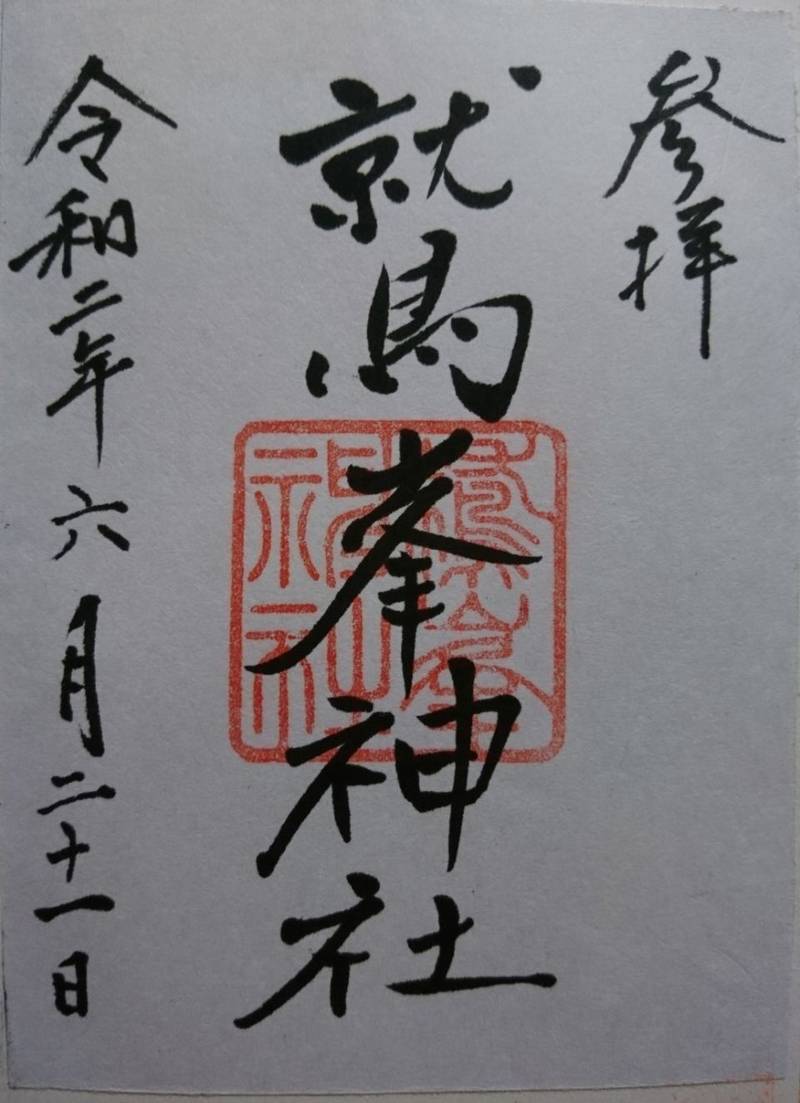 参拝
鷲峯神社
令和二年六月二十一日
鷲峯
神社